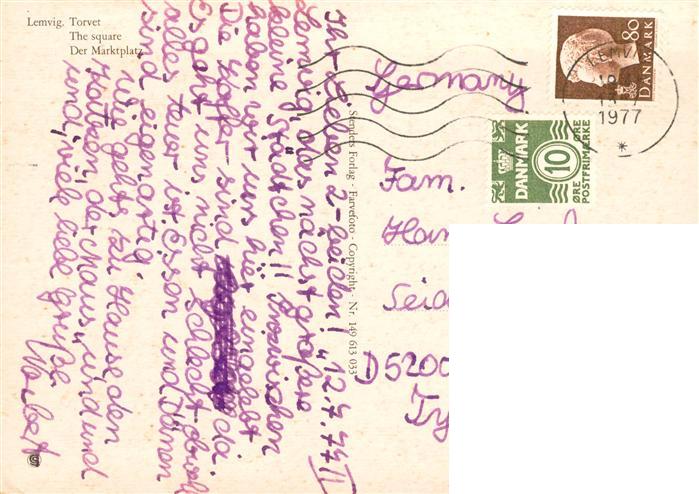 Lemvig. Torvet
The square
Der Marktplatz
Ihr lieben 2-beiden! 12.7.77
Lemvig, das nächst größere
kleine Städtchen!! Inzwischen
haben wir uns hier eingelebt
Die Koffer sind da.
Es geht uns nicht schlecht obwohl
alles teuer ist. Essen und Dänen
sind eigenartig.
Wie gehts zu Hause, den
Katzen, der Maus, und und
und, viele liebe Grüße
Norbert
Senders Forlag - Farvefoto - Copyright - Nr. 149 613 033
80
DANMARK
LEMVIG
1977
DANMARK
10
ØRE
POSTFRIMÆRKE
ØRE
Germany
Fam.
Han
Seid
D5200